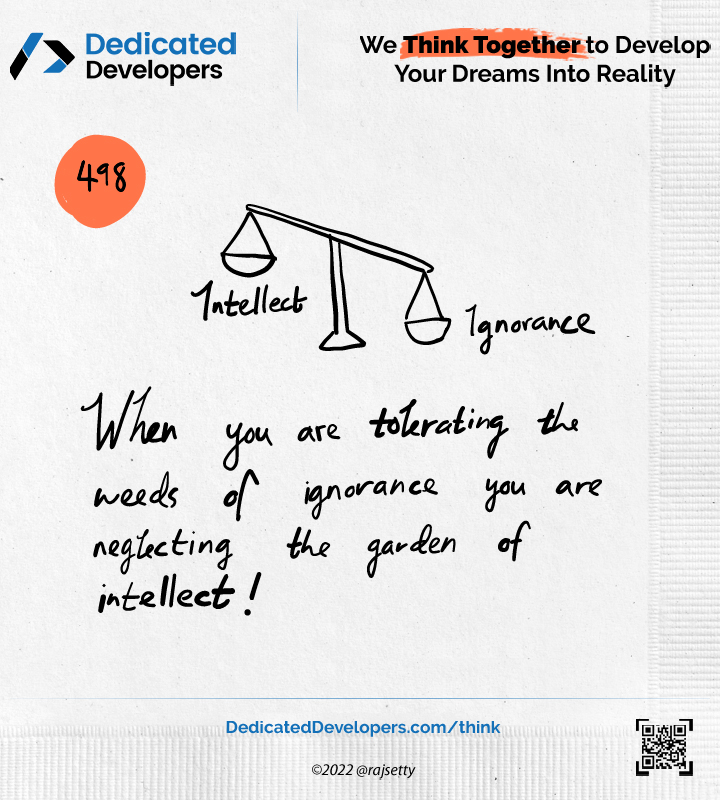 Dedicated
Developers
We Think Together to Develop
Your Dreams Into Reality
498
Intellect
Ignorance
When you are tolerating the
weeds of ignorance you are
neglecting the garden of
intellect!
DedicatedDevelopers.com/think
©2022 @rajsetty